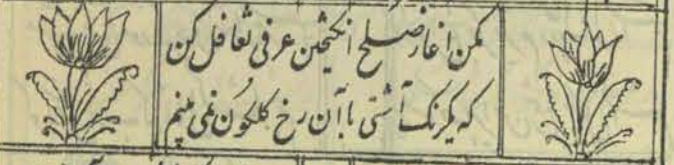 مکن اغاز صلح انگیختن عرفی تغافل کن
که یکرنگ آشتی با آن رخ گلگون نمی بینم